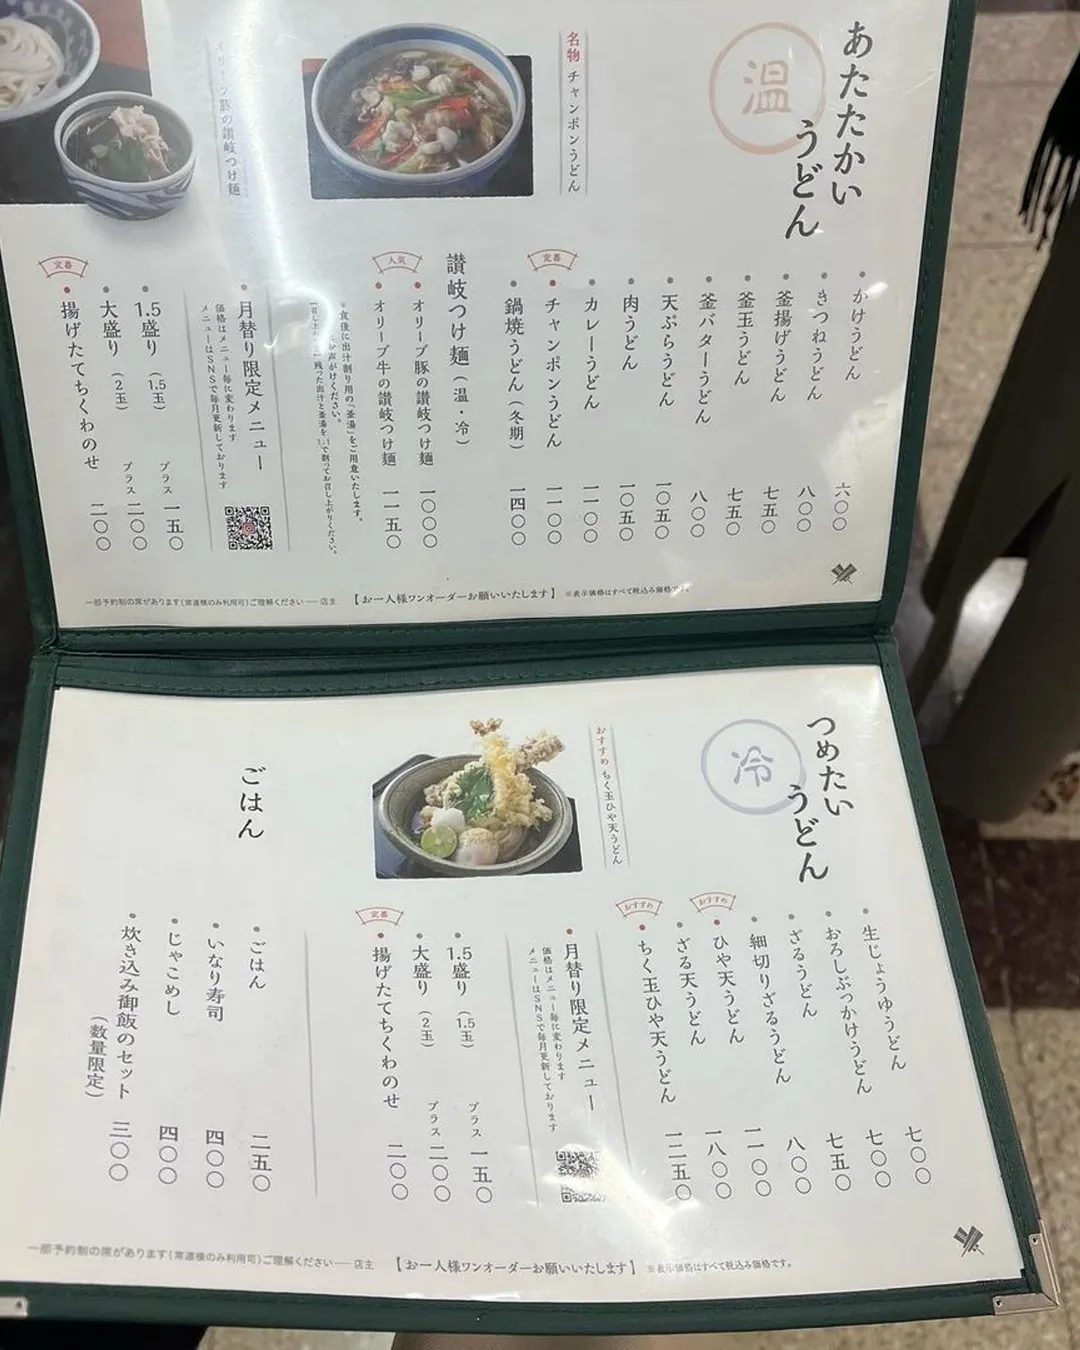 あたたかい
うどん
温
名物 チャンポンうどん
オリーブ豚の讃岐つけ麺
かけうどん 六〇〇
きつねうどん 八〇〇
釜揚げうどん 七五〇
釜玉うどん 七五〇
釜バターうどん 八〇〇
天ぷらうどん 一〇五〇
肉うどん 一〇五〇
カレーうどん 一一〇〇
定番
チャンポンうどん 一一〇〇
鍋焼うどん(冬期) 一四〇〇
讃岐つけ麺(温・冷)
オリーブ豚の讃岐つけ麺 一〇〇〇
人気
オリーブ牛の讃岐つけ麺 一一五〇
※食後に出汁割り用の「釜湯」をご用意いたします。
声がけください。
残った出汁と釜湯を1:1で割ってお召し上がりください。
月替り限定メニュー
価格はメニュー毎に変わります
メニューはSNSで毎月更新しております
1.5盛り(1.5玉) プラス 一五〇
大盛り(2玉) プラス 二〇〇
定番
揚げたてちくわのせ 二〇〇
一部予約制の席があります(常連様のみ利用可)ご理解ください── 店主 【お一人様ワンオーダーお願いいたします】 ※表示価格はすべて税込み価格です。
つめたい
うどん
冷
おすすめ ちく玉ひや天うどん
生じょうゆうどん 七〇〇
おろしぶっかけうどん 七〇〇
ざるうどん 七五〇
細切りざるうどん 八〇〇
おすすめ
ひや天うどん 一一〇〇
ざる天うどん 一八〇〇
おすすめ
ちく玉ひや天うどん 一二五〇
月替り限定メニュー
価格はメニュー毎に変わります
メニューはSNSで毎月更新しております
1.5盛り(1.5玉) プラス 一五〇
大盛り(2玉) プラス 二〇〇
定番
揚げたてちくわのせ 二〇〇
ごはん
ごはん 二五〇
いなり寿司 四〇〇
じゃこめし 四〇〇
炊き込み御飯のセット(数量限定) 三〇〇
一部予約制の席があります(常連様のみ利用可)ご理解ください── 店主 【お一人様ワンオーダーお願いいたします】 ※表示価格はすべて税込み価格です。